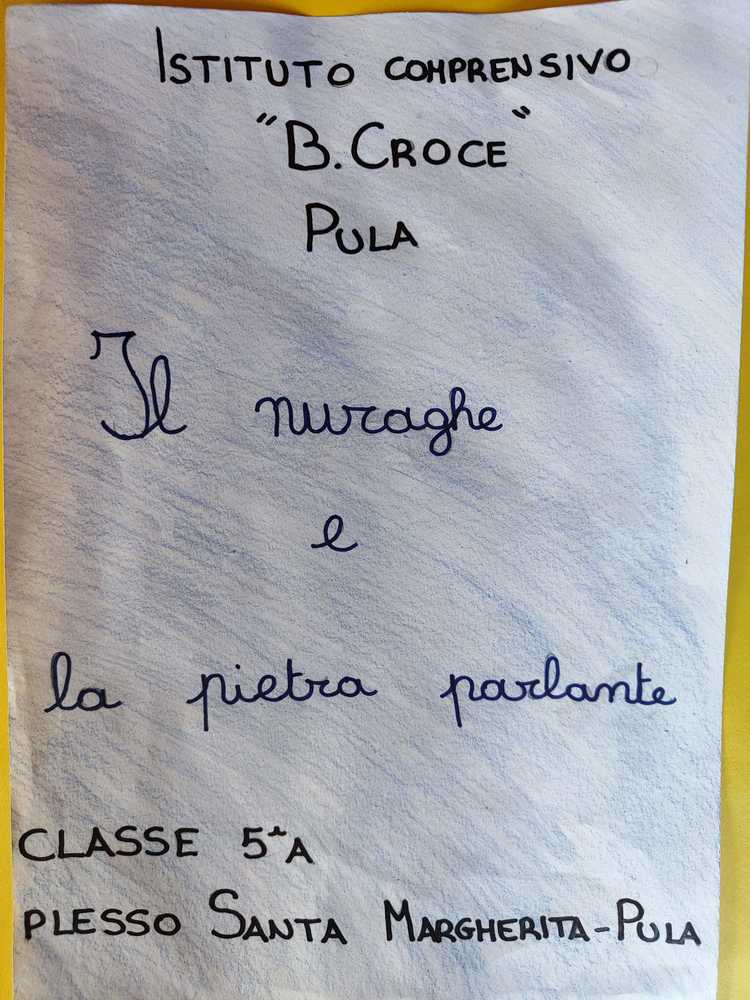 ISTITUTO COMPRENSIVO
"B. CROCE"
PULA
Il nuraghe
e
la pietra parlante
CLASSE 5ªA
PLESSO SANTA MARGHERITA-PULA